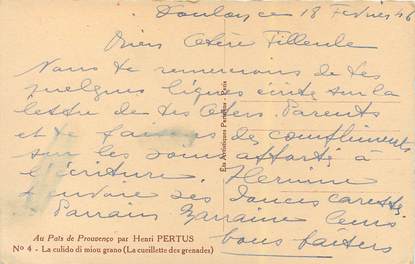 Toulouse 18 Fevrier 46
Bien Chère Filleule
Nous te remercions de tes
quelques lignes écrite sur la
lettre de tes Chers Parents
et te faisons des compliments
sur les soins apportés à
l'écriture.
t'envoie ses douces caresses
Parrain Marraine Leurs
bons baisers
Éts Artistiques Parisiens - Paris
Au Païs de Prouvenço par Henri PERTUS
Nº 4 - La culido di miou grano (La cueillette des grenades)